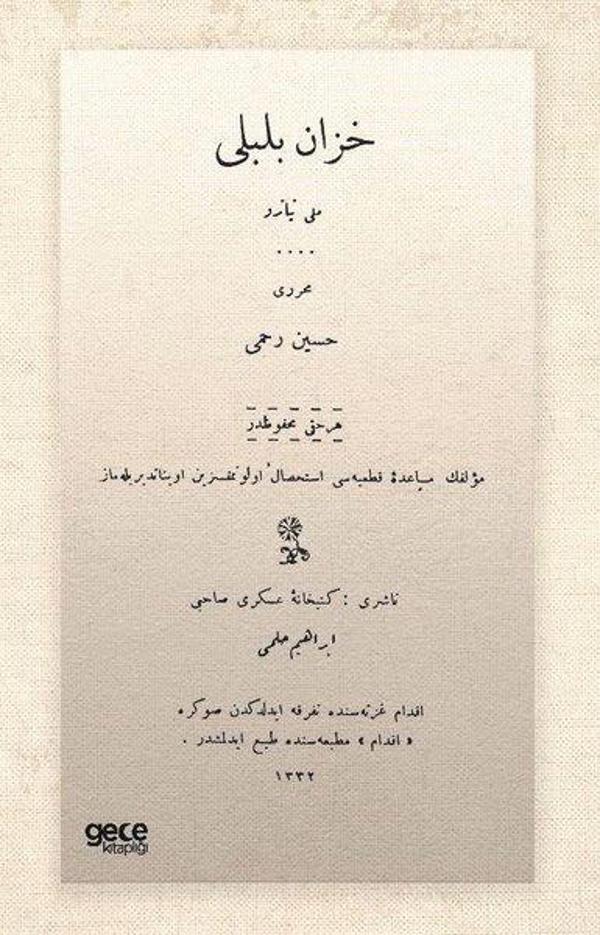 خزان بلبلى
ملى تياترو
محررى
حسين رحمى
هر حقى محفوظدر
مؤلفك مساعدهٔ قطعيه‌سى استحصال اولونمقسزين اويناتديريله‌ماز
ناشرى : كتبخانهٔ عسكرى صاحبى
ابراهيم حلمى
اقدام غزته‌سنده تفرقه ايدلدكدن صوكره
« اقدام » مطبعه‌سنده طبع ايدلمشدر .
١٣٣٢
gece
kitaplığı